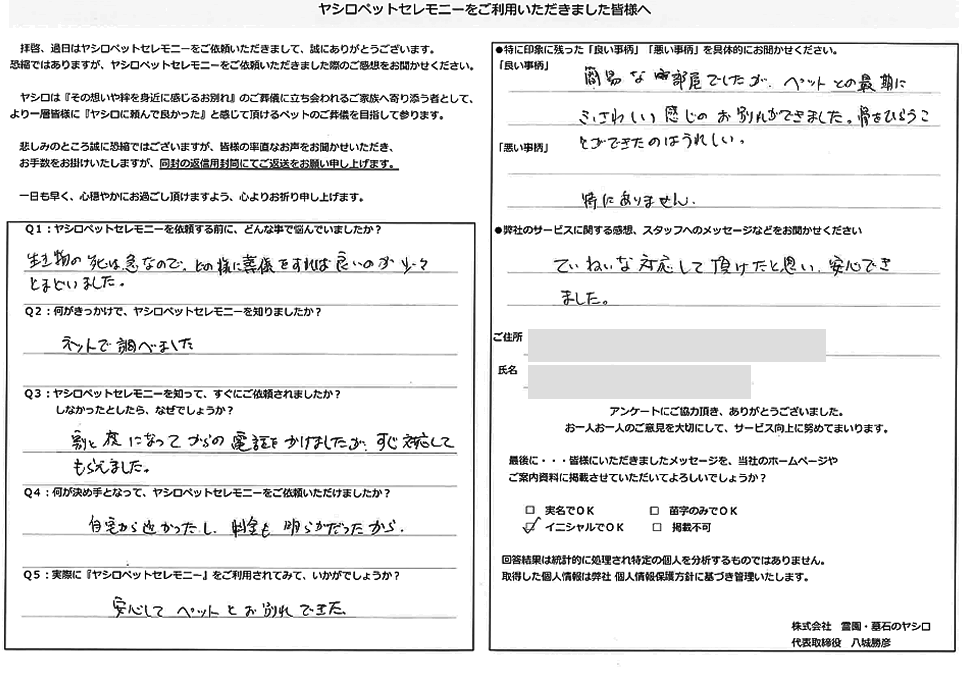 ヤシロペットセレモニーをご利用いただきました皆様へ
拝啓、過日はヤシロペットセレモニーをご依頼いただきまして、誠にありがとうございます。
恐縮ではありますが、ヤシロペットセレモニーをご依頼いただきました際のご感想をお聞かせください。
ヤシロは『その想いや絆を身近に感じるお別れ』のご葬儀に立ち会われるご家族へ寄り添う者として、
より一層皆様に『ヤシロに頼んで良かった』と感じて頂けるペットのご葬儀を目指して参ります。
悲しみのところ誠に恐縮ではございますが、皆様の率直なお声をお聞かせいただき、
お手数をお掛けいたしますが、同封の返信用封筒にてご返送をお願い申し上げます。
一日も早く、心穏やかにお過ごし頂けますよう、心よりお祈り申し上げます。
Q1:ヤシロペットセレモニーを依頼する前に、どんな事で悩んでいましたか?
生き物の死は急なので、どの様に葬儀をすれば良いのか少々
とまどいました。
Q2:何がきっかけで、ヤシロペットセレモニーを知りましたか?
ネットで調べました
Q3:ヤシロペットセレモニーを知って、すぐにご依頼されましたか?
しなかったとしたら、なぜでしょうか?
割と夜になってからの電話をかけましたが、すぐ対応して
もらえました。
Q4:何が決め手となって、ヤシロペットセレモニーをご依頼いただけましたか?
自宅から近かったし、料金も明らかだったから.
Q5:実際に『ヤシロペットセレモニー』をご利用されてみて、いかがでしょうか?
安心してペットとお別れできた
●特に印象に残った「良い事柄」「悪い事柄」を具体的にお聞かせください。
「良い事柄」
簡易なお部屋でしたが、ペットとの最期に
ふさわしい感じのお別れができました。骨をひろうこ
とができたのはうれしい。
「悪い事柄」
特にありません.
●弊社のサービスに関する感想、スタッフへのメッセージなどをお聞かせください
ていねいな対応して頂けたと思い、安心でき
ました。
ご住所
氏名
アンケートにご協力頂き、ありがとうございました。
お一人お一人のご意見を大切にして、サービス向上に努めてまいります。
最後に・・・皆様にいただきましたメッセージを、当社のホームページや
ご案内資料に掲載させていただいてよろしいでしょうか?
□ 実名でOK □ 苗字のみでOK
☑ イニシャルでOK □ 掲載不可
回答結果は統計的に処理され特定の個人を分析するものではありません。
取得した個人情報は弊社 個人情報保護方針に基づき管理いたします。
株式会社 霊園・墓石のヤシロ
代表取締役 八城勝彦